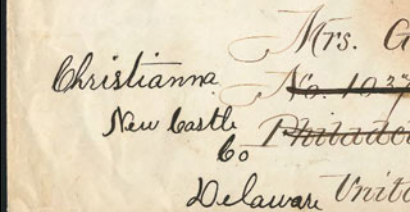 Mrs. G
Christianna No. 1037
New Castle Philadel
Co
Delaware Unite